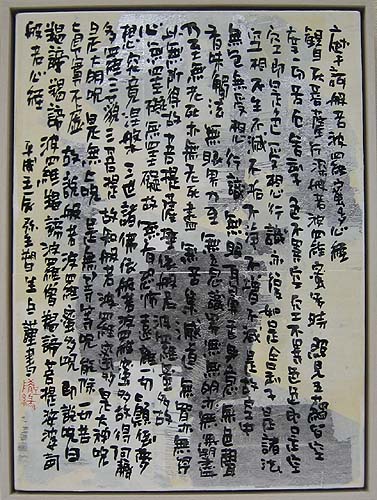 摩訶般若波羅蜜多心經
觀自在菩薩行深般若波羅蜜多時 照見五蘊皆空
度一切苦厄舍利子 色不異空空不異色色即是空
空即是色受想行識亦復如是舍利子是諸法
空相不生不滅不垢不淨不增不減是故空中
無色無受想行識 無眼耳鼻舌身意無色聲
香味觸法無眼界乃至無意識界無無明亦無無明盡
乃至無老死亦無老死盡 無苦集滅道 無智亦無得
以無所得故菩提薩埵依般若波羅蜜多故
心無罣礙無罣礙故無有恐怖遠離一切顛倒夢
想究竟涅槃三世諸佛依般若波羅蜜多故得阿耨
多羅三藐三菩提故知般若波羅蜜多是大神呪
是大明呪是無上呪是無等等呪能除一切苦
真實不虛 故說般若波羅蜜多呪即說呪曰
揭諦揭諦波羅揭諦波羅僧揭諦菩提娑婆訶
般若心經 壬辰 謹書